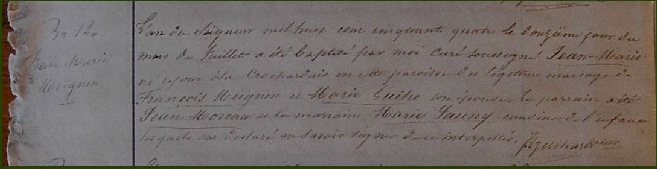 Bp. 12o
Jean Marie
Huguin
L'an du Seigneur mil huit cent cinquante quatre le douzième jour du
mois de Juillet a été baptisé par moi Curé soussigné Jean-Marie
né ce jour à la Crochardais en cette paroisse du légitime mariage de
François Huguin et Marie Guiho son épouse. Le parrain a été
Jean Moreau et la marraine Marie Jauny cousine de l'enfant
laquelle a déclaré ne savoir signer de ce interpellés.